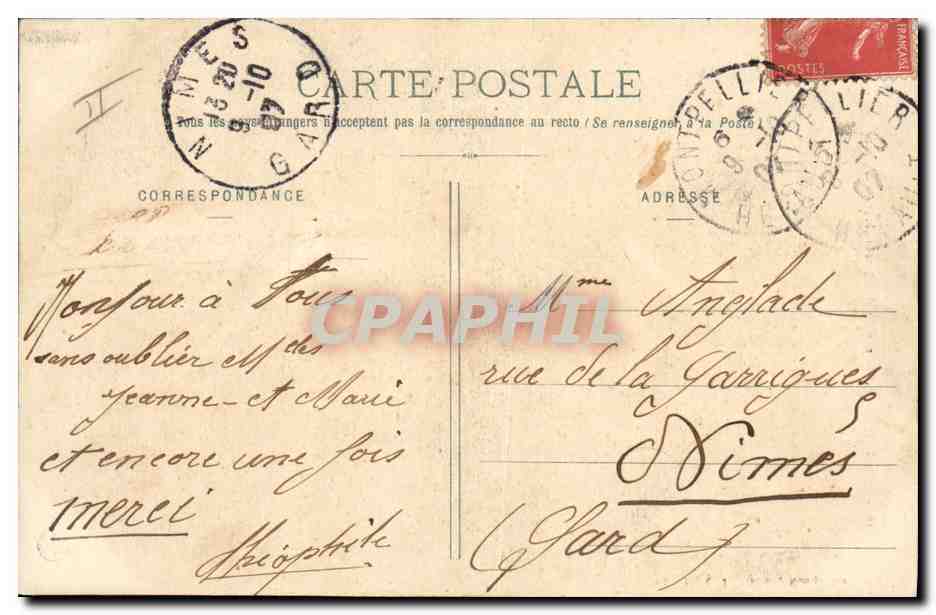 II
NIMES
13 20
9 -10
07
GARD
CARTE POSTALE
Tous les pays étrangers n'acceptent pas la correspondance au recto (Se renseigner à la Poste)
FRANÇAISE
POSTES
MONTPELLIER
CORRESPONDANCE
ADRESSE
Bonjour à Tous
sans oublier Mdes
Jeanne et Marie
et encore une fois
merci
Théophile
Mme Anglade
rue de la Garrigues
5
Nimes
(Gard)
CPAPHIL